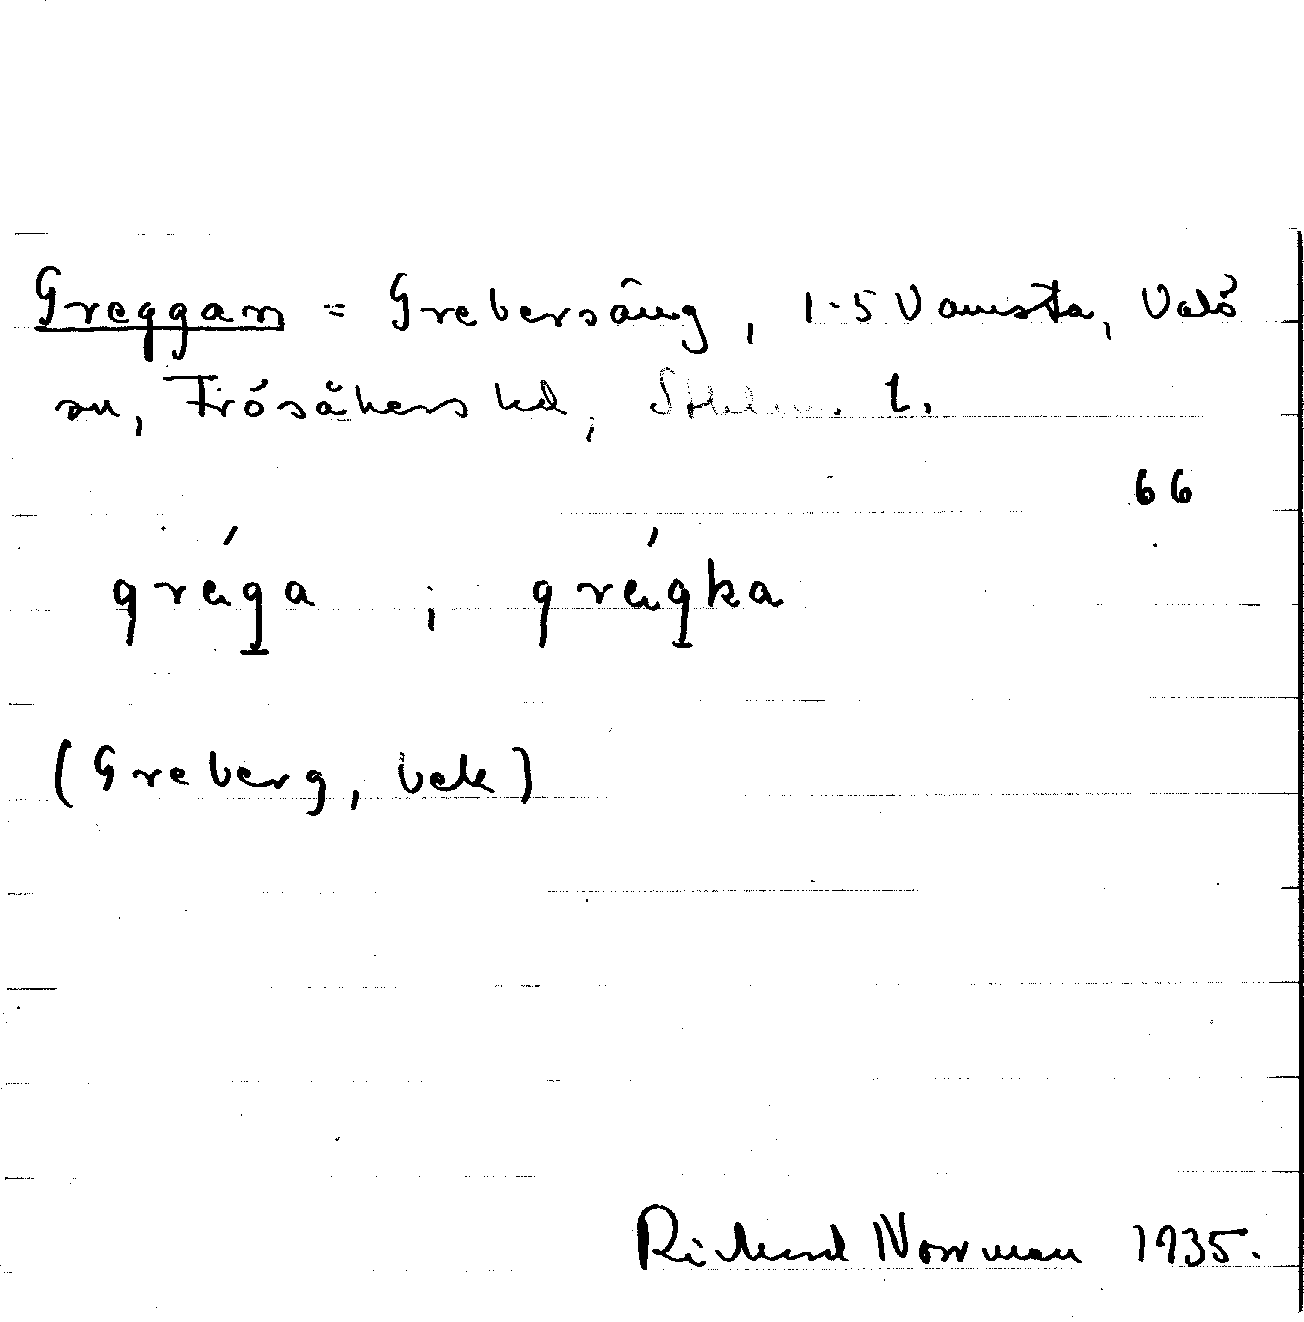 Greggan = Grebersäng, 1-5 Vamsta, Valö
sn, Frösåkers hd, Sthlm. l.
66
gréga ; grégka
(Greberg, bek)
Rickard Norrman 1935.